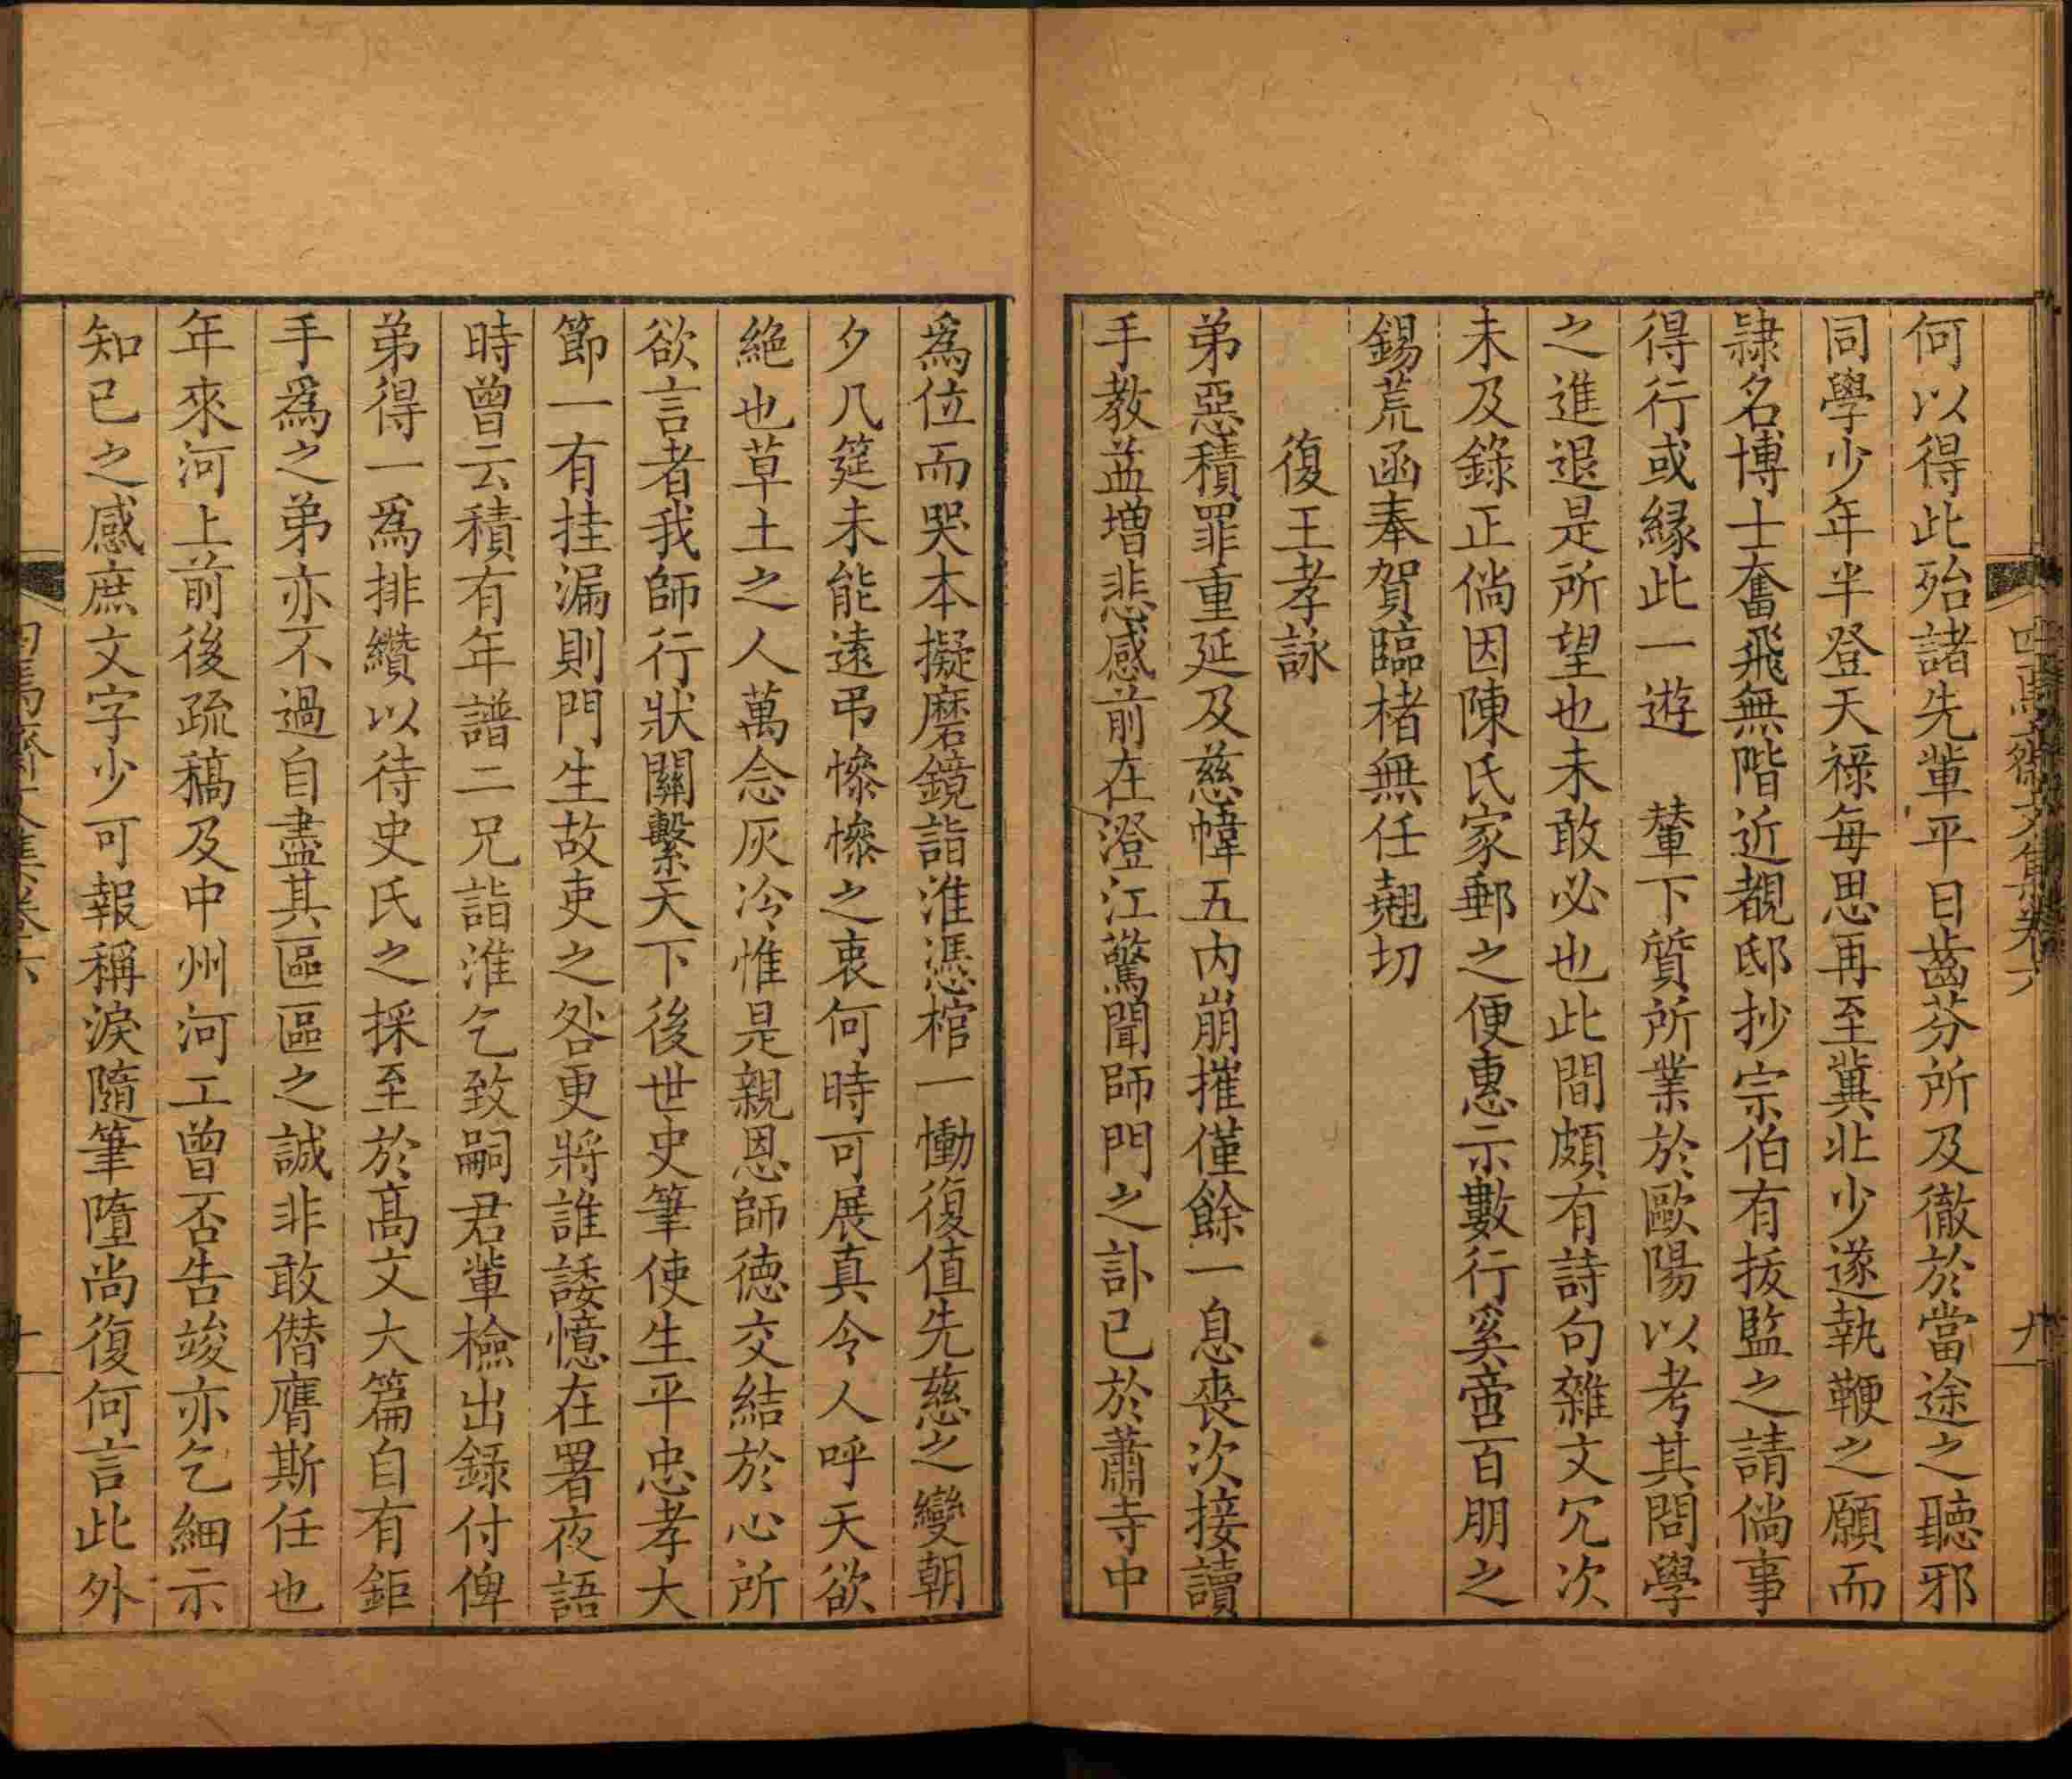 何以得此殆諸先輩平日齒芬所及徹於當途之聽邪
同學少年半登天祿每思再至冀北少遂執鞭之願而
隷名博士奮飛無階近覩邸抄宗伯有拔監之請倘事
得行或緣此一遊　輦下質所業於歐陽以考其問學
之進退是所望也未敢必也此間頗有詩句雜文冗次
未及錄正倘因陳氏家郵之便惠示數行奚啻百朋之
錫荒函奉賀臨楮無任翹切
復王孝詠
弟惡積罪重延及慈幃五内崩摧僅餘一息喪次接讀
手教益增悲感前在澄江驚聞師門之訃已於蕭寺中
爲位而哭本擬磨鏡詣淮憑棺一慟復值先慈之變朝
夕几筵未能遠弔慘慘之衷何時可展真令人呼天欲
絶也草土之人萬念灰冷惟是親恩師德交結於心所
欲言者我師行狀關繫天下後世史筆使生平忠孝大
節一有挂漏則門生故吏之咎更將誰諉憶在署夜語
時曾云積有年譜二兄詣淮乞致嗣君輩檢出錄付俾
弟得一爲排纘以待史氏之採至於高文大篇自有鉅
手爲之弟亦不過自盡其區區之誠非敢僭膺斯任也
年來河上前後疏稿及中州河工曾否告竣亦乞細示
知已之感庶文字少可報稱淚隨筆墮尚復何言此外